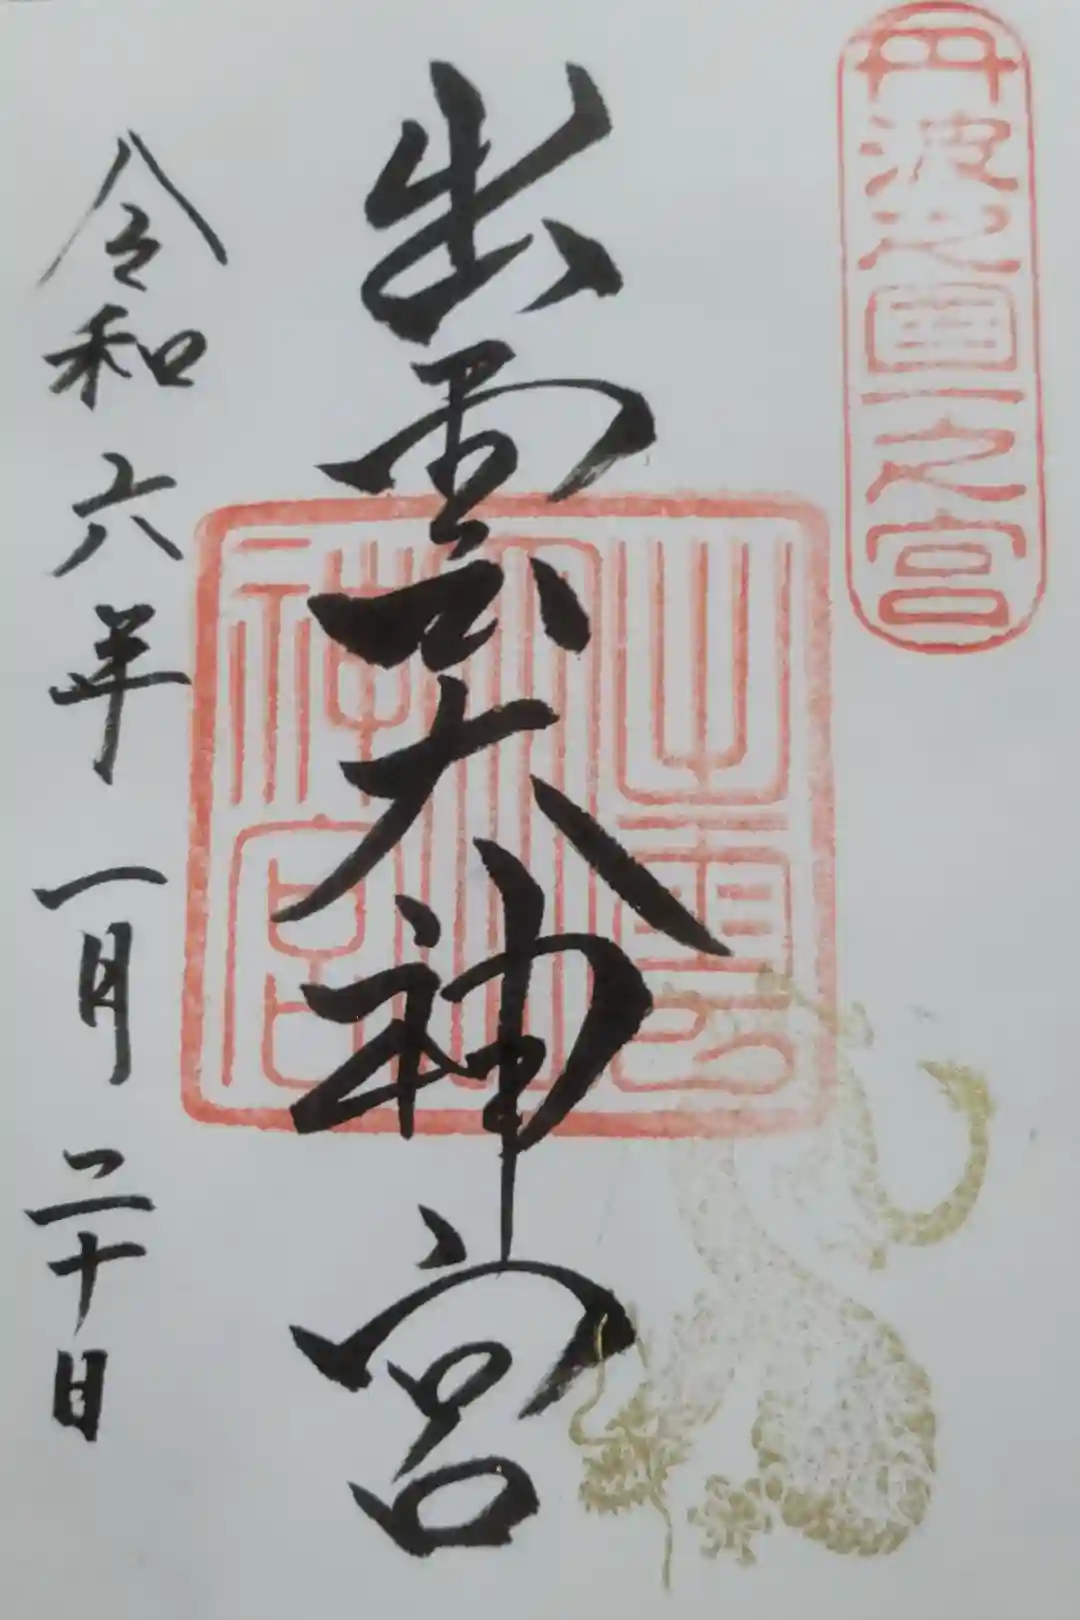 丹波之国一之宮
出雲大神宮
出雲大神宮
令和六年一月二十日